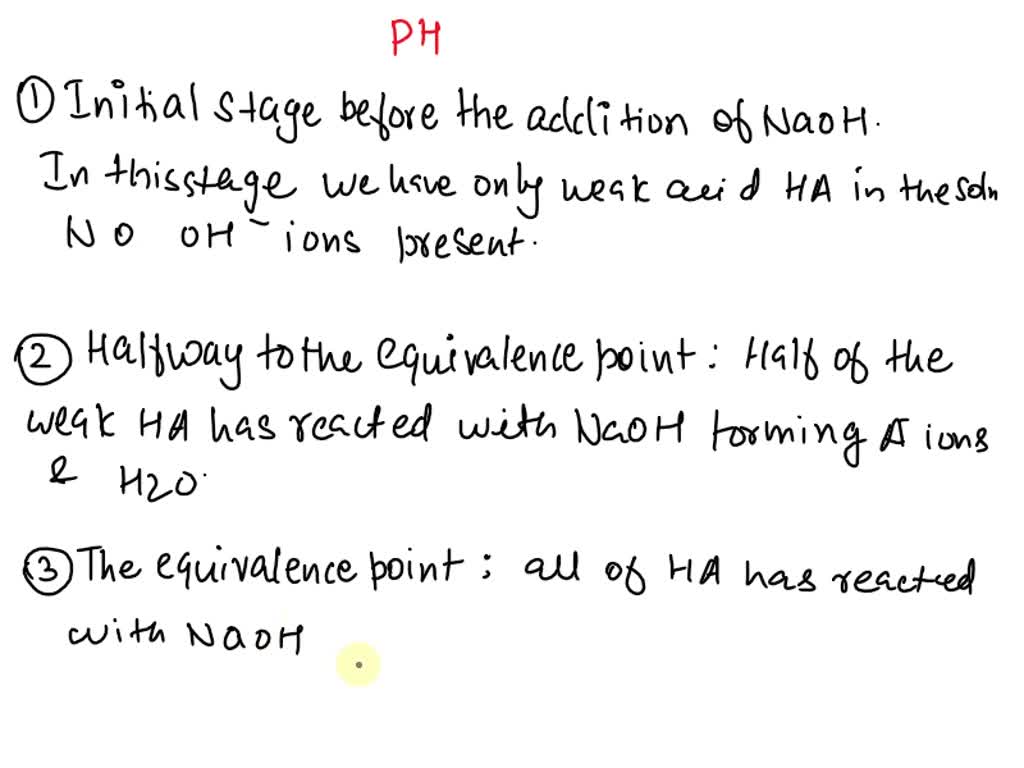 PH
① Initial stage before the addition of NaOH.
In thisstage we have only weak acid HA in the soln
NO OH⁻ ions present.
② Halfway to the equivalence point : Half of the
weak HA has reacted with NaOH forming A⁻ ions
& H2O.
③ The equivalence point ; all of HA has reacted
with NaOH